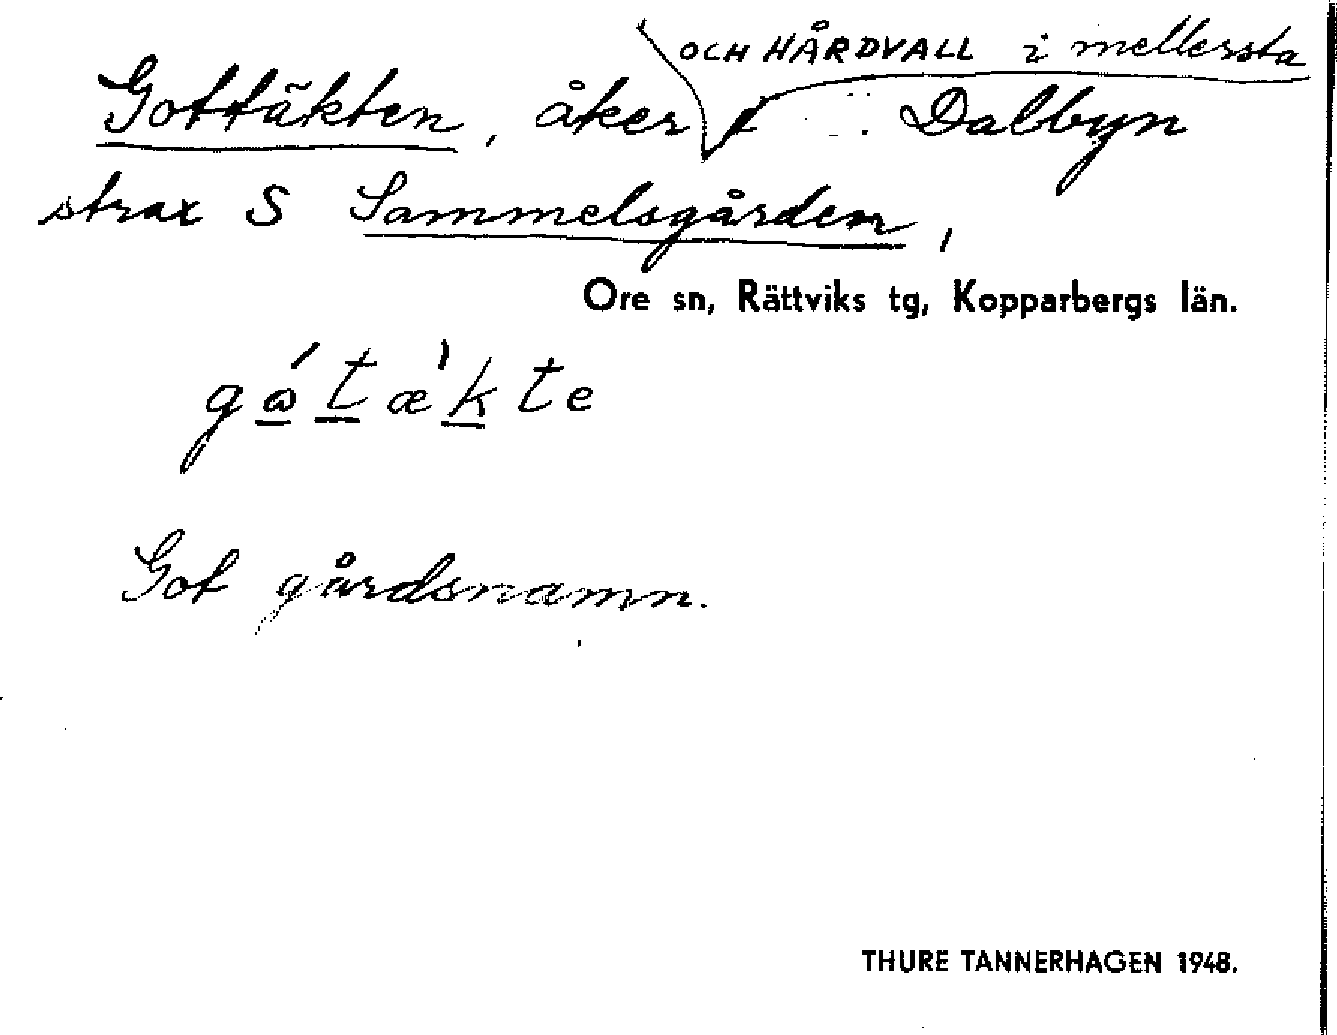 OCH HÅRDVALL i mellersta
Gottäkten, åker Dalbyn
strax S Sammelsgården,
Ore sn, Rättviks tg, Kopparbergs län.
Got gårdsnamn.
THURE TANNERHAGEN 1948.